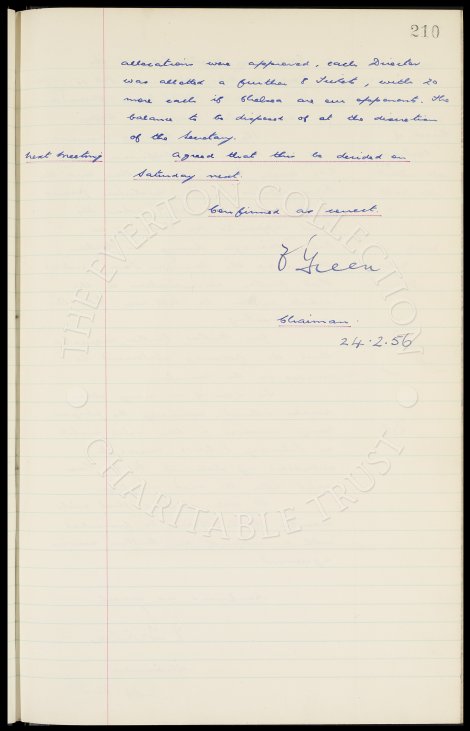 210
allocations were approved, each Director
was allotted a further 8 Tickets, with 20
more each if Chelsea are our opponents. The
balance to be disposed of at the discretion
of the Secretary.
Next Meeting Agreed that this be decided on
Saturday next.
Confirmed as correct.
Green
Chairman.
24.2.56
THE EVERTON COLLECTION
CHARITABLE TRUST